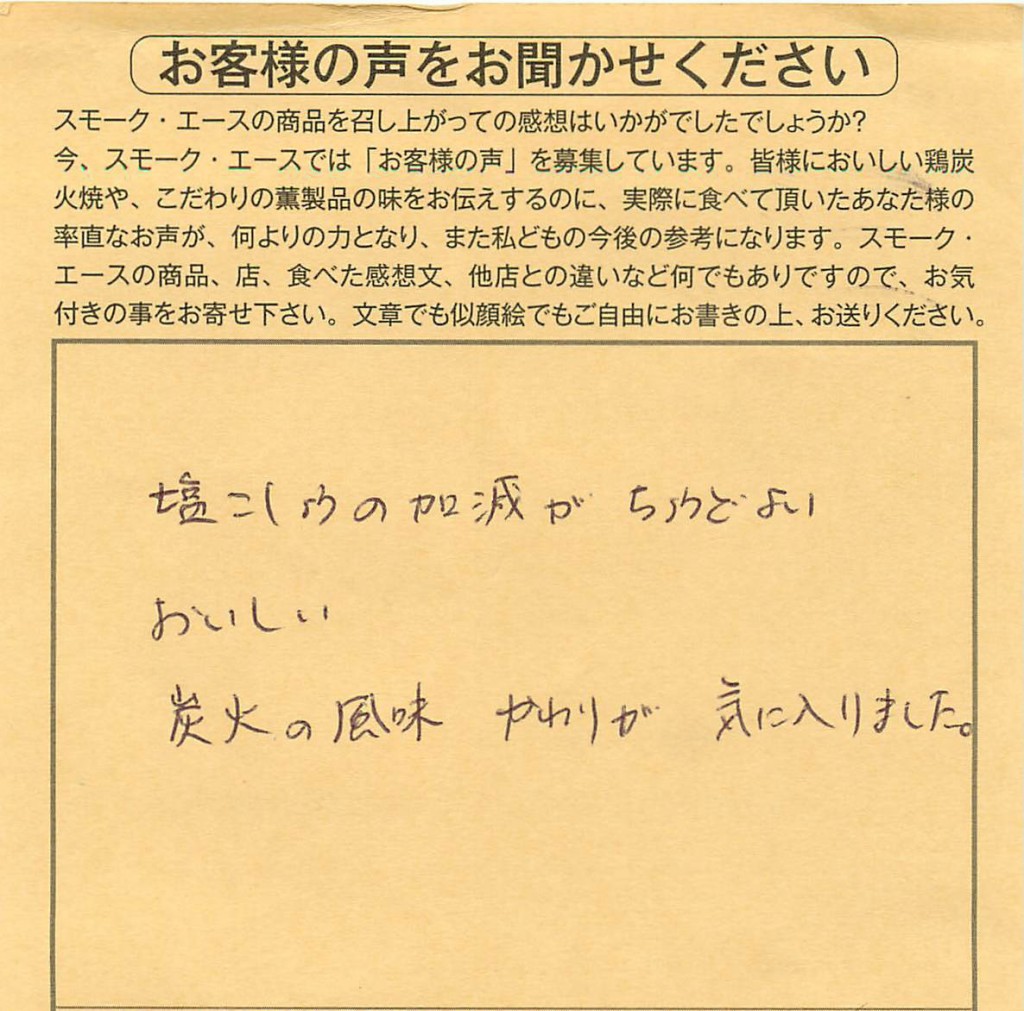 お客様の声をお聞かせください
スモーク・エースの商品を召し上がっての感想はいかがでしたでしょうか?
今、スモーク・エースでは「お客様の声」を募集しています。皆様においしい鶏炭
火焼や、こだわりの薫製品の味をお伝えするのに、実際に食べて頂いたあなた様の
率直なお声が、何よりの力となり、また私どもの今後の参考になります。スモーク・
エースの商品、店、食べた感想文、他店との違いなど何でもありですので、お気
付きの事をお寄せ下さい。文章でも似顔絵でもご自由にお書きの上、お送りください。
塩こしょうの加減が ちょうどよい
おいしい
炭火の風味 が 気に入りました。